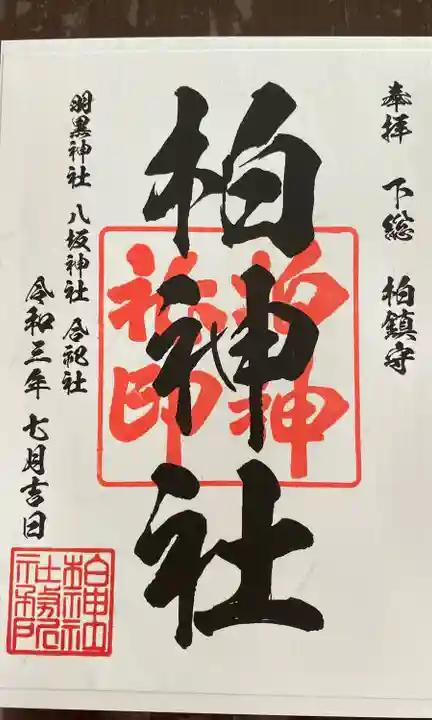 奉拝 下総 柏鎮守
柏神社
柏神
社印
羽黒神社 八坂神社 合祀社
令和三年 七月吉日
柏神社
社務所
之印